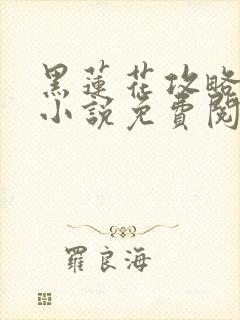 黑蓮花攻略
小說免費閱
羅良海